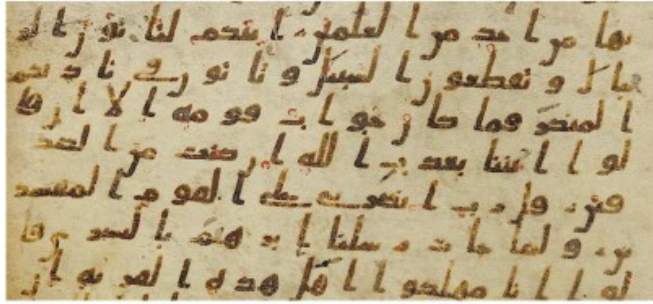 بها من احد من العلمين انكم لتاتون الر
جال و تقطعون السبيل و تاتون في ناديكم
المنكر فما كان جواب قومه الا ان قا
لوا ائتنا بعذاب الله ان كنت من الصد
قين قال رب انصرني على القوم المفسد
ين و لما جات رسلنا ابرهيم بالبشرى قا
لوا انا مهلكوا اهل هذه القرية ان